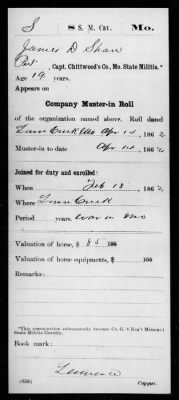 S 8 S. M. Cav. Mo.
James D Shaw
Pvt, Capt. Chittwood's Co., Mo. State Militia.*
Age 19 years.
Appears on
Company Muster-in Roll
of the organization named above. Roll dated
Linn Creek Mo, Apr 14, 1862
Muster-in to date Apr 14, 1862
Joined for duty and enrolled:
When Feb 18, 1862
Where Linn Creek
Period years. war in Mo
Valuation of horse, $ 85 100
Valuation of horse equipments, $ 100
Remarks:
*This organization subsequently became Co. G, 8 Reg't Missouri
State Militia Cavalry.
Book mark:
Lawrence
(356) Copyist.